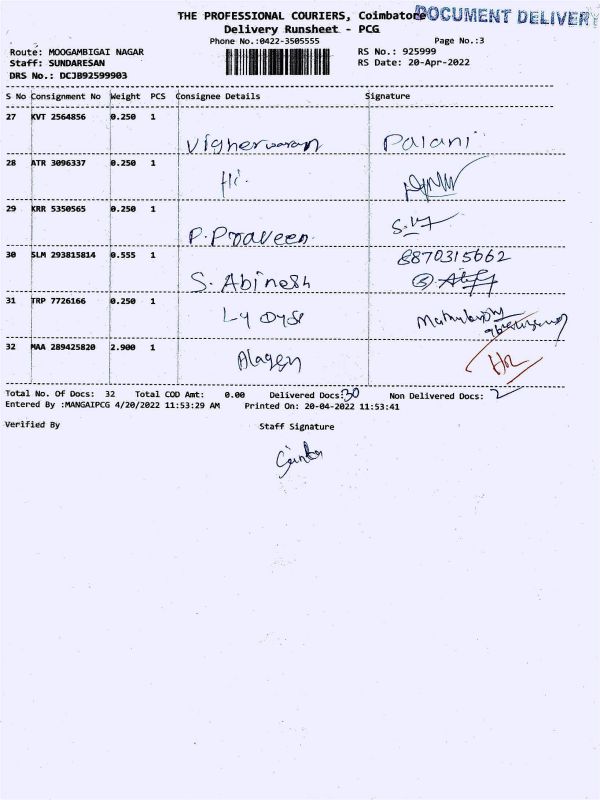 THE PROFESSIONAL COURIERS, Coimbatore
DOCUMENT DELIVERY
Delivery Runsheet - PCG
Phone No.:0422-3505555 Page No.:3
Route: MOOGAMBIGAI NAGAR RS No.: 925999
Staff: SUNDARESAN RS Date: 20-Apr-2022
DRS No.: DCJB92599903
S No Consignment No Weight PCS Consignee Details Signature
27 KVT 2564856 0.250 1
Vigherwaran Palani
28 ATR 3096337 0.250 1
Hi.
29 KRR 5350565 0.250 1
P. Praveen.
30 SLM 293815814 0.555 1 8870315662
S. Abinesh
31 TRP 7726166 0.250 1
32 MAA 289425820 2.900 1
Alagen
Total No. Of Docs: 32 Total COD Amt: 0.00 Delivered Docs: 30 Non Delivered Docs: 2
Entered By :MANGAIPCG 4/20/2022 11:53:29 AM Printed On: 20-04-2022 11:53:41
Verified By Staff Signature